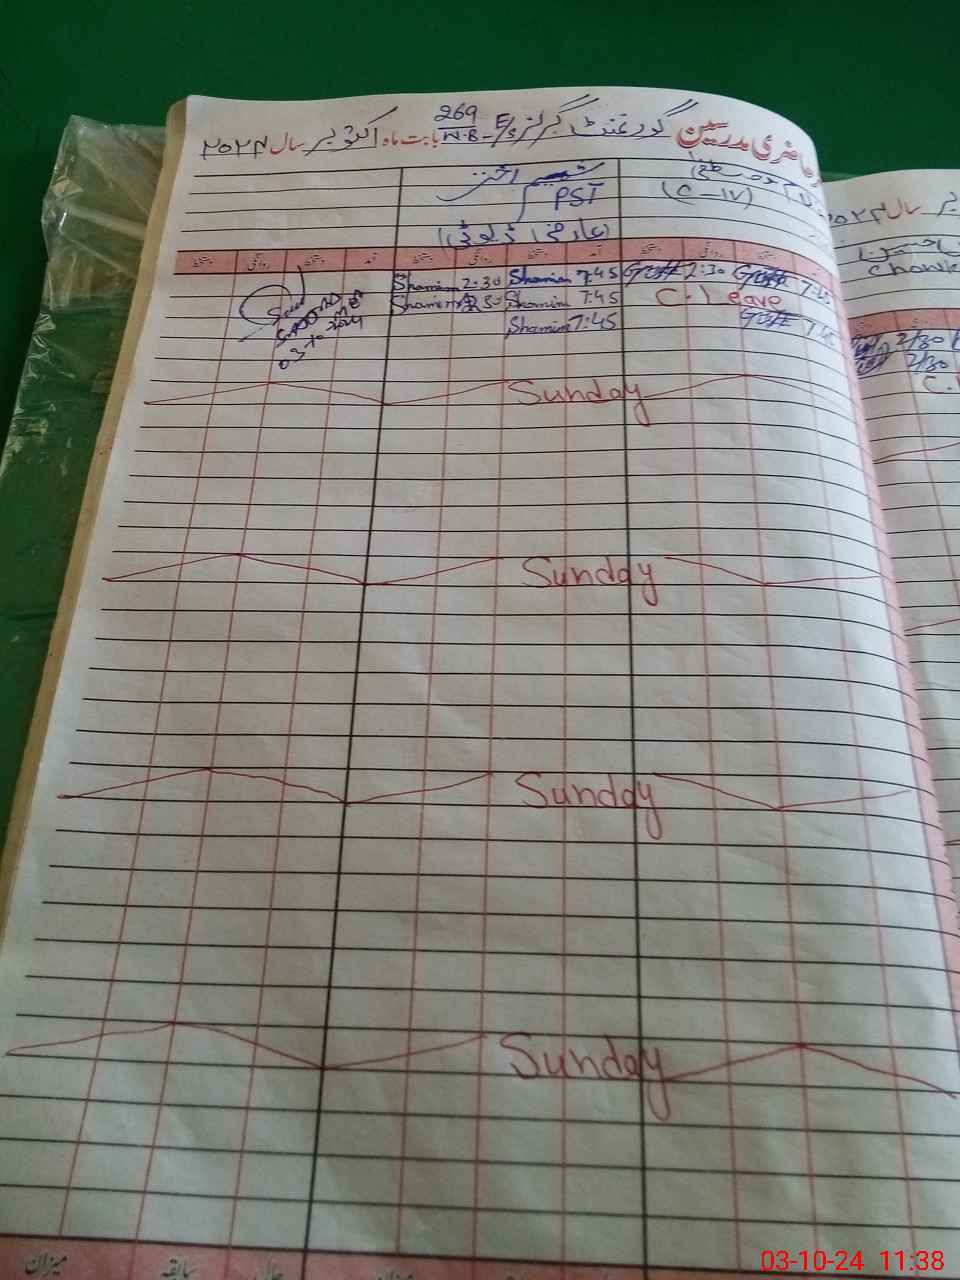 حاضری مدرسین گورنمنٹ گرلز E/S 269 W.B بابت ماہ اکتوبر سال ۲۰۲۴
شمیم اختر
PST
(عارضی ڈیوٹی)
(C-IV)
آمد دستخط روانگی دستخط آمد دستخط روانگی دستخط
7:45 2:30 7:45 Shamim 2:30 Shamim
C. Leave 7:45 Shamim 2:30 Shamim
7:45 7:45 Shamim
03-10-2024
Sunday
Sunday
Sunday
Sunday
میزان سابقہ حالی میزان
سال ۲۰۲۴
2/30
2/30
03-10-24 11:38